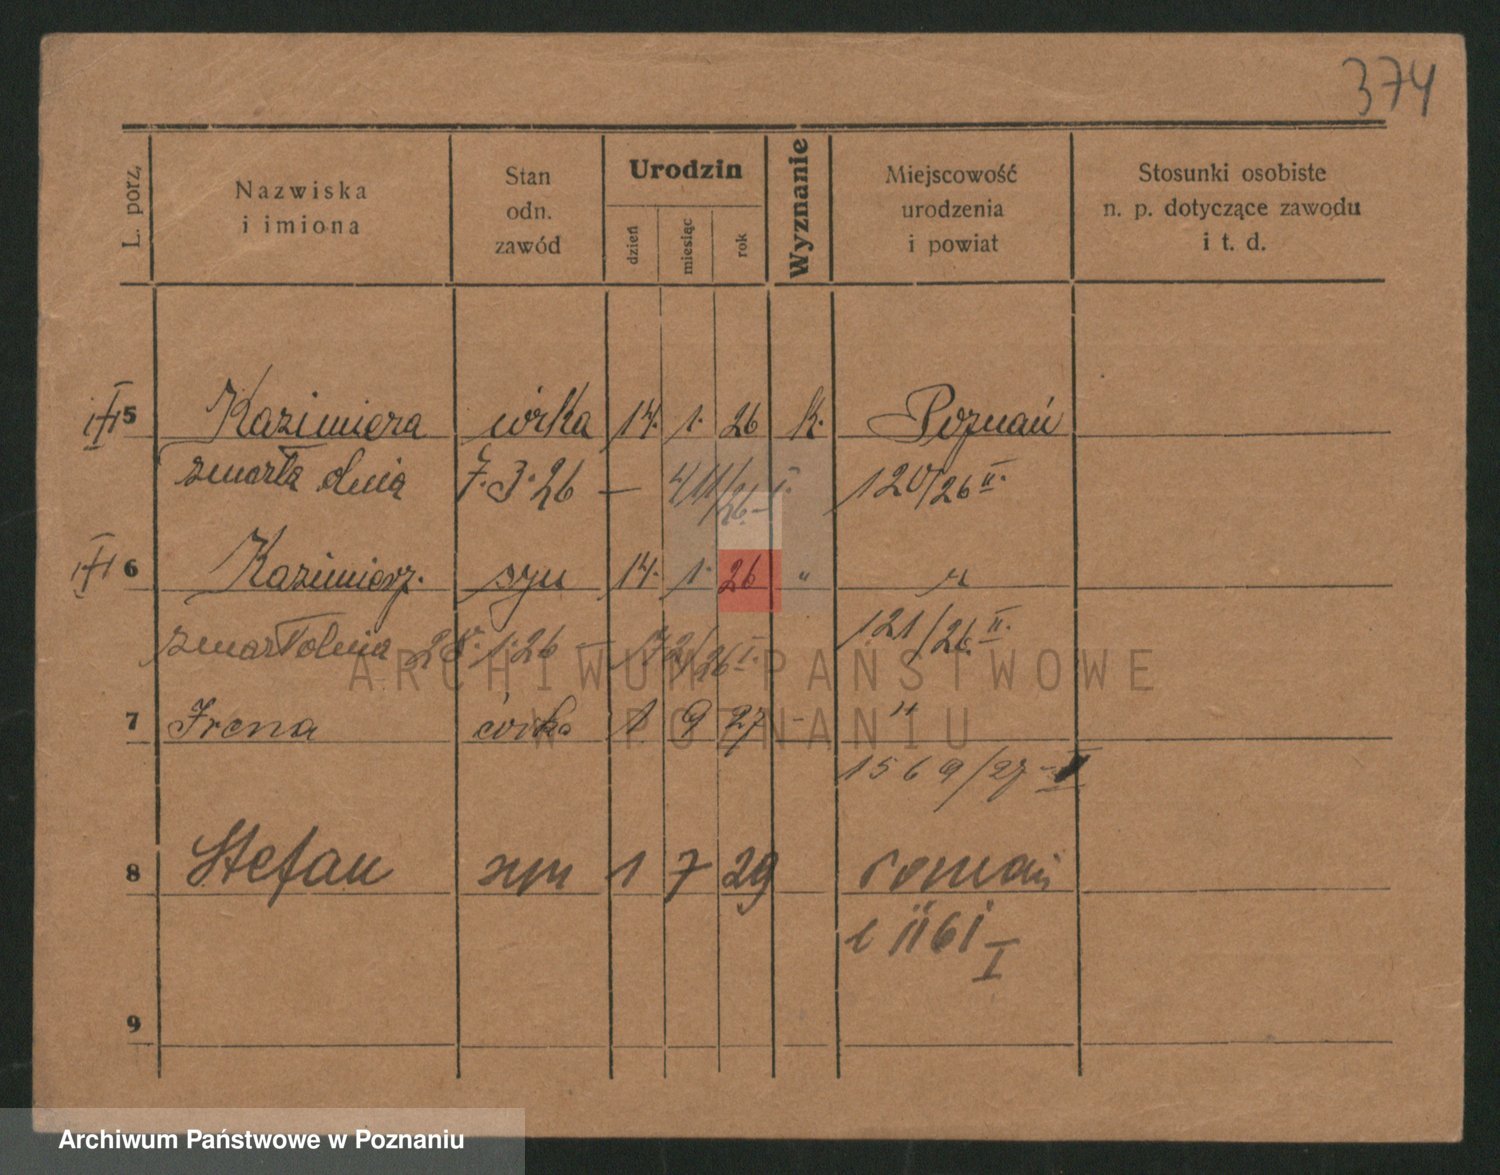 374
L. porz.
Nazwiska
i imiona
Stan
odn.
zawód
Urodzin
dzień
miesiąc
rok
Wyznanie
Miejscowość
urodzenia
i powiat
Stosunki osobiste
n. p. dotyczące zawodu
i t. d.
5 Kazimiera córka 14. 1. 26 K. Poznań
zmarła dnia 7.3.26 — 411/26 - I. 120/26 II.
6 Kazimierz. syn 14. 1. 26 " "
zmarł dnia 28. 1. 26 — 172/26 I. 121/26 II.
ARCHIWUM PAŃSTWOWE
W POZNANIU
7 Irena córka 1 9 27 - "
1569/27 -
8 Stefan syn 1 7 29
1161 I
9
Archiwum Państwowe w Poznaniu